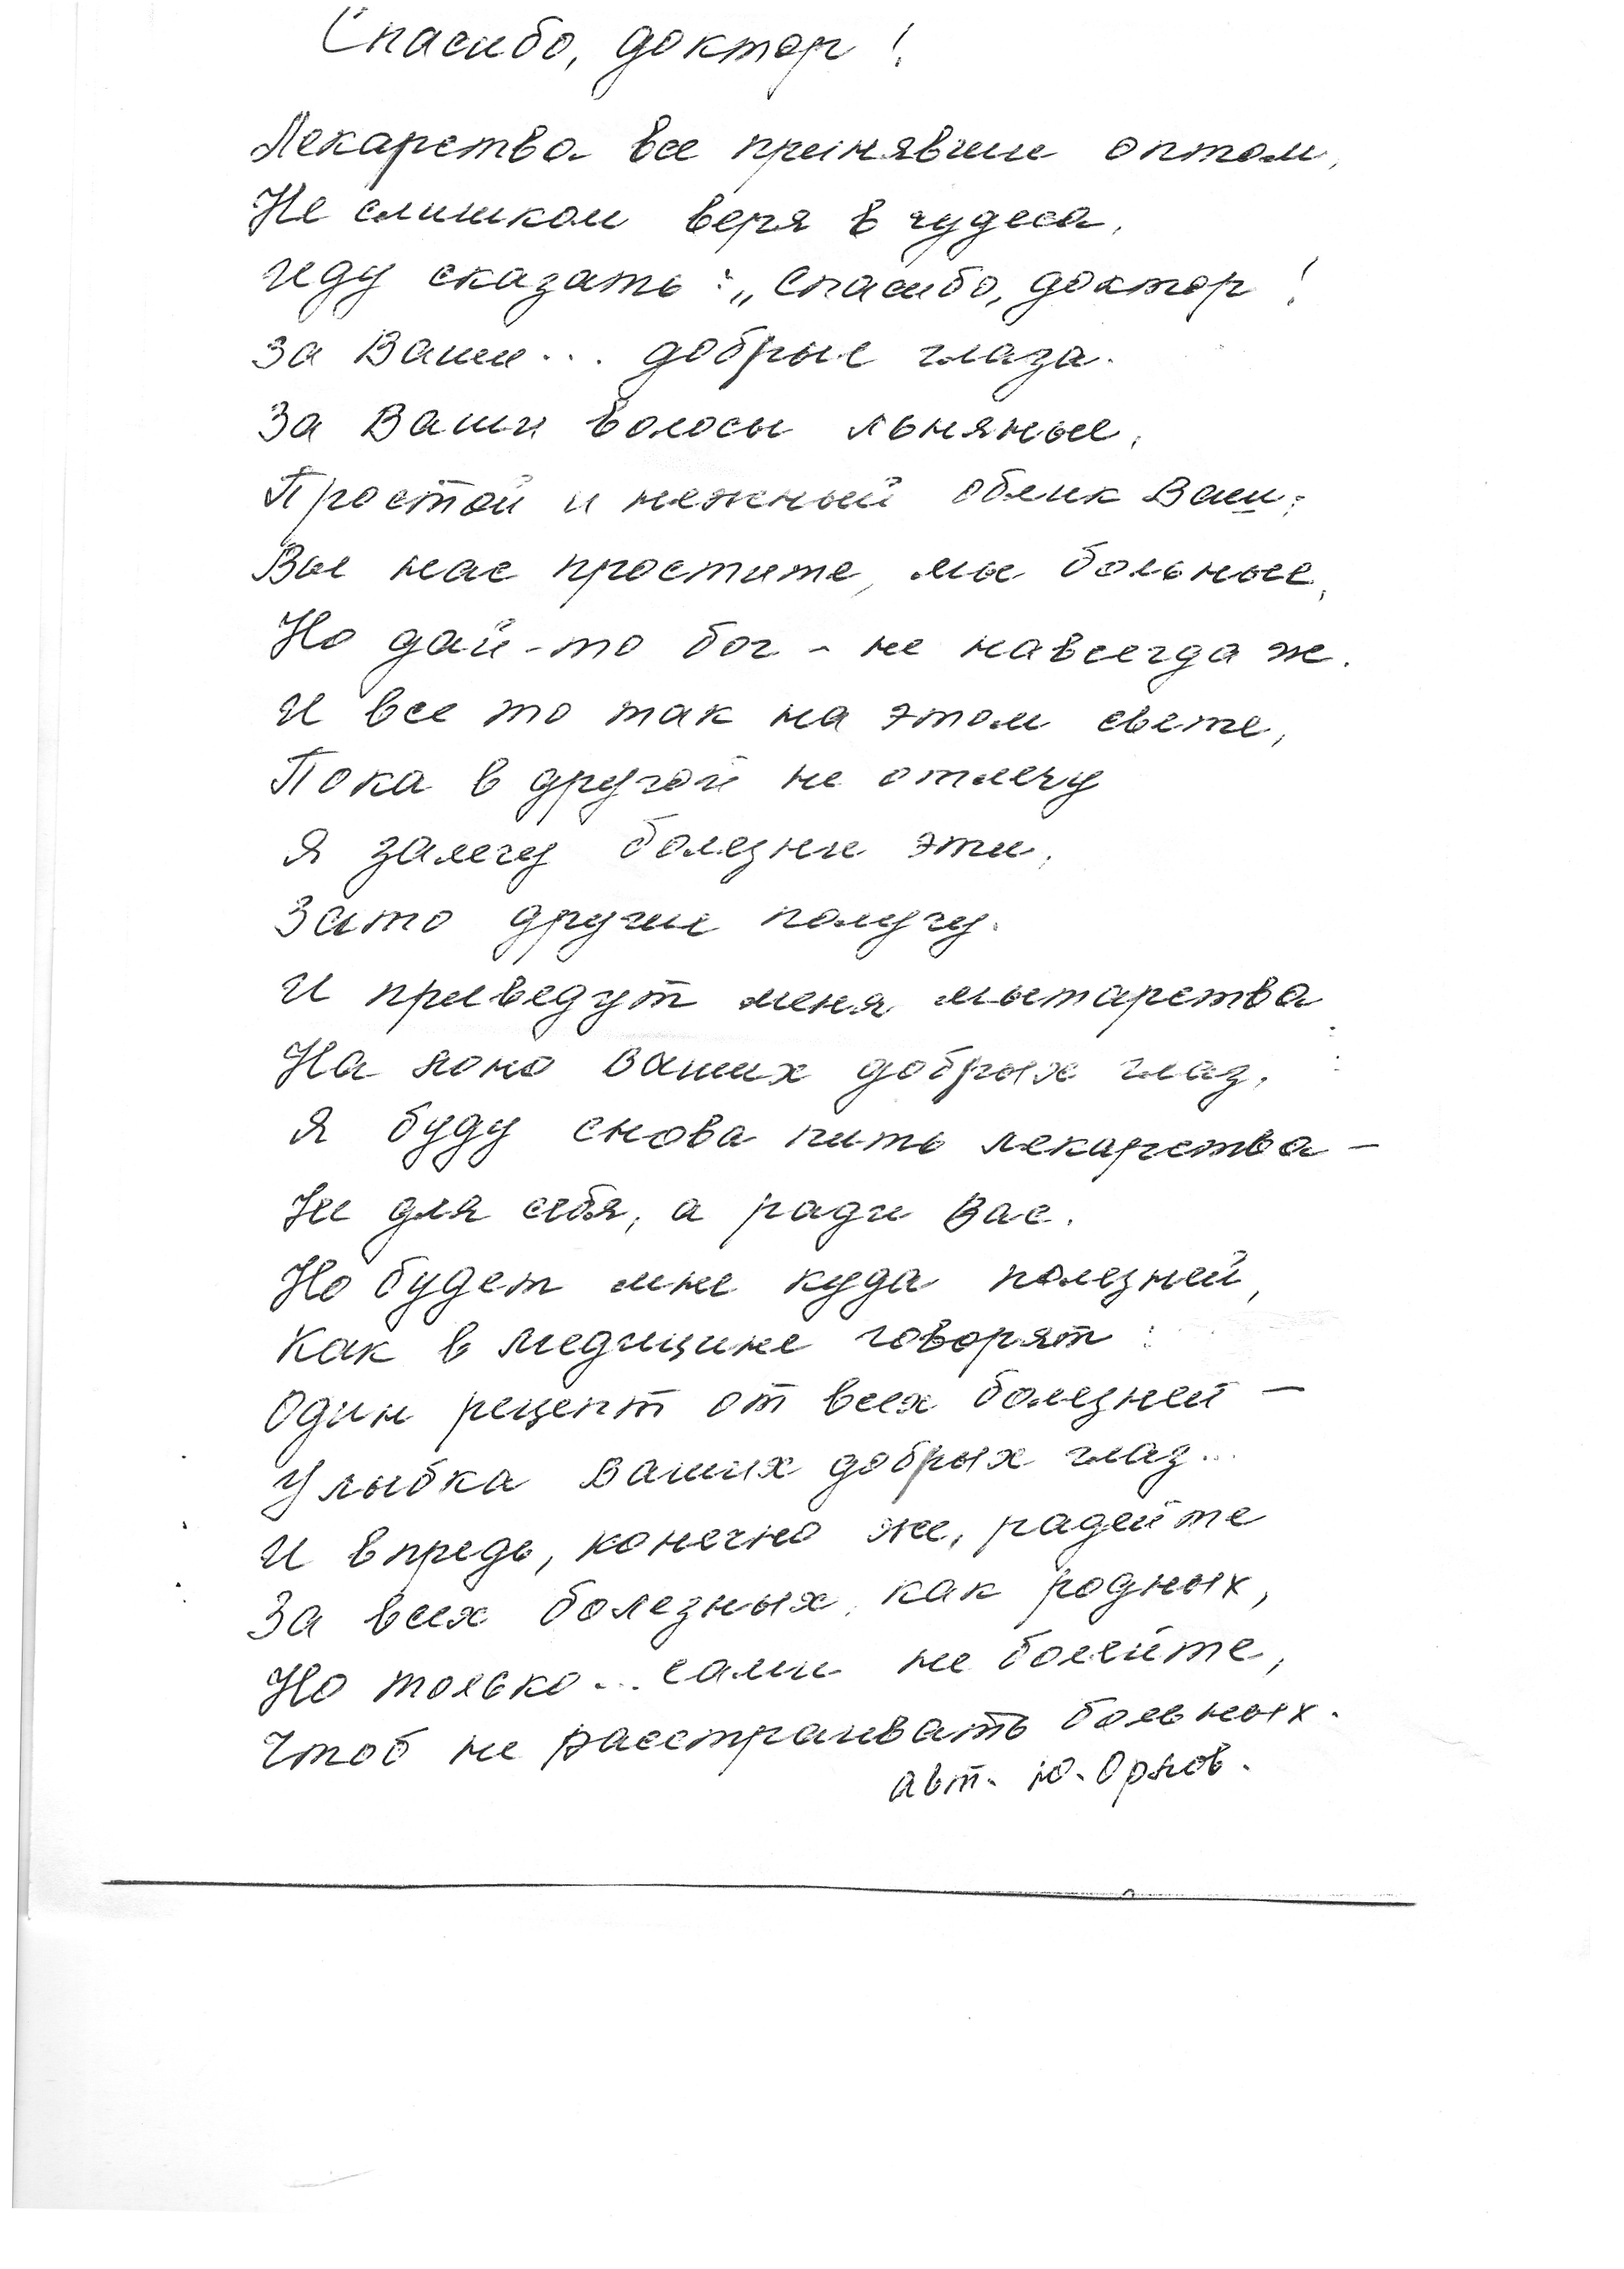 Спасибо, доктор!
Лекарства все принявши оптом,
Не слишком веря в чудеса,
Иду сказать: „Спасибо, доктор!
За Ваши... добрые глаза.
За Ваши волосы льняные,
Простой и нежный облик Ваш;
Вы нас простите, мы больные,
Но дай-то бог - не навсегда ж.
И все то так на этом свете,
Пока в другой не отлечу
Я залечу болезни эти,
Зато другие получу.
И приведут меня мытарства
На лоно Ваших добрых глаз,
Я буду снова пить лекарства -
Не для себя, а ради Вас.
Но будет мне куда полезней,
Как в медицине говорят:
Один рецепт от всех болезней -
Улыбка Ваших добрых глаз...
И впредь, конечно же, радейте
За всех болезных, как родных,
Но только... сами не болейте,
Чтоб не расстраивать больных.
авт. Ю. Орлов.